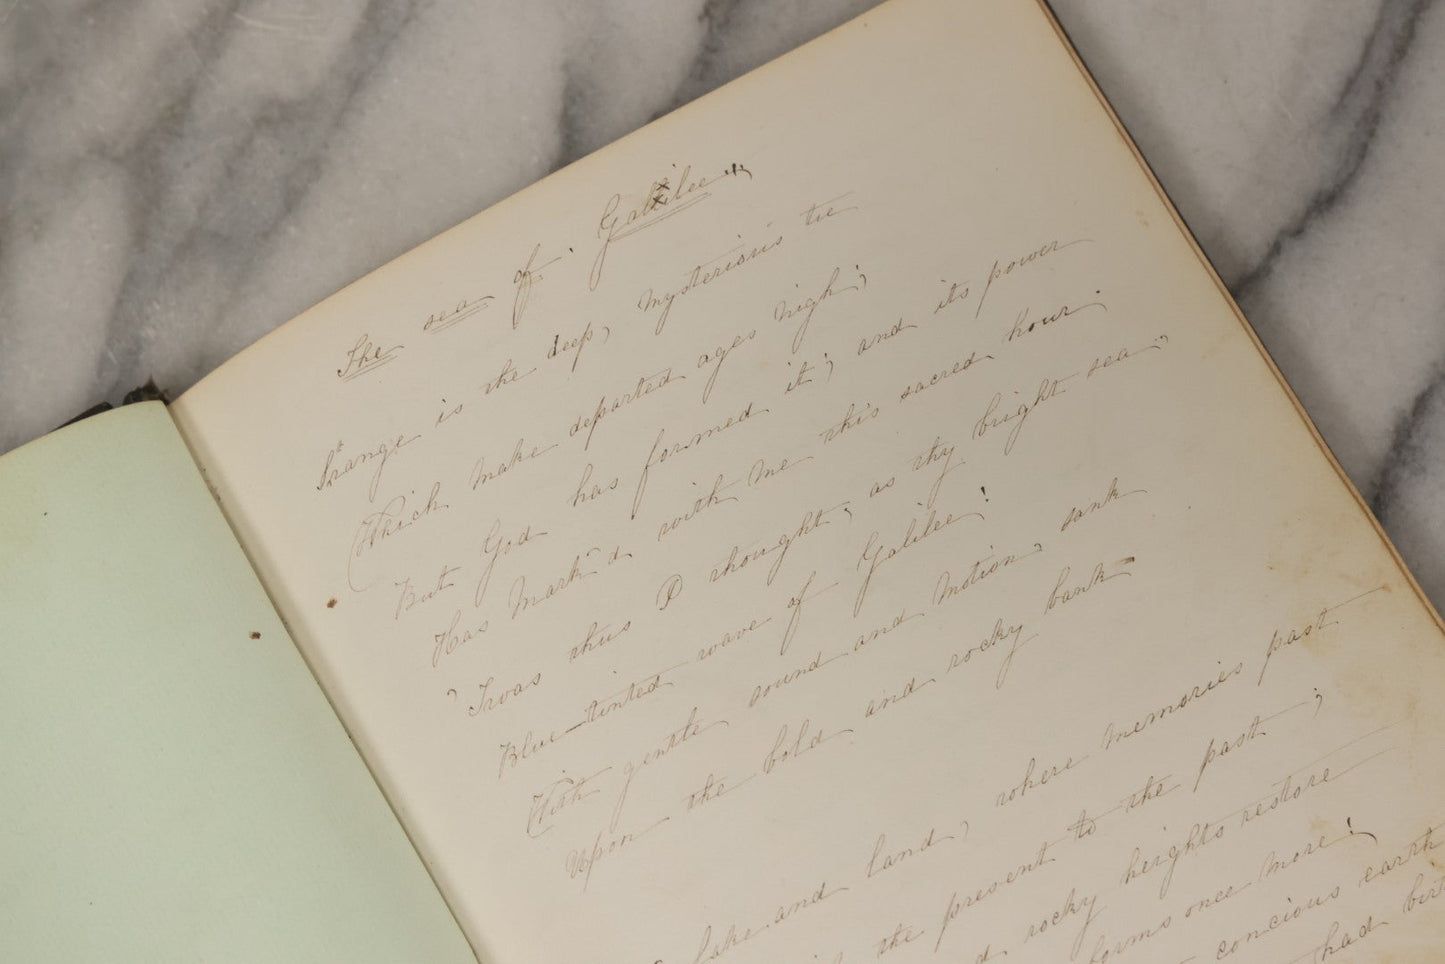 The sea of Galilee.
Strange is the deep, mysterious tie
Which make departed ages nigh;
But God has formed it; and its power
Has mark'd with me this sacred hour.
'Twas thus I thought, as thy bright sea,
Blue-tinted wave of Galilee!
With gentle sound and motion, sank
Upon the bold and rocky bank—
lake and land, where memories past
the present to the past;
rocky heights restore
forms once more!
concious earth
had birt